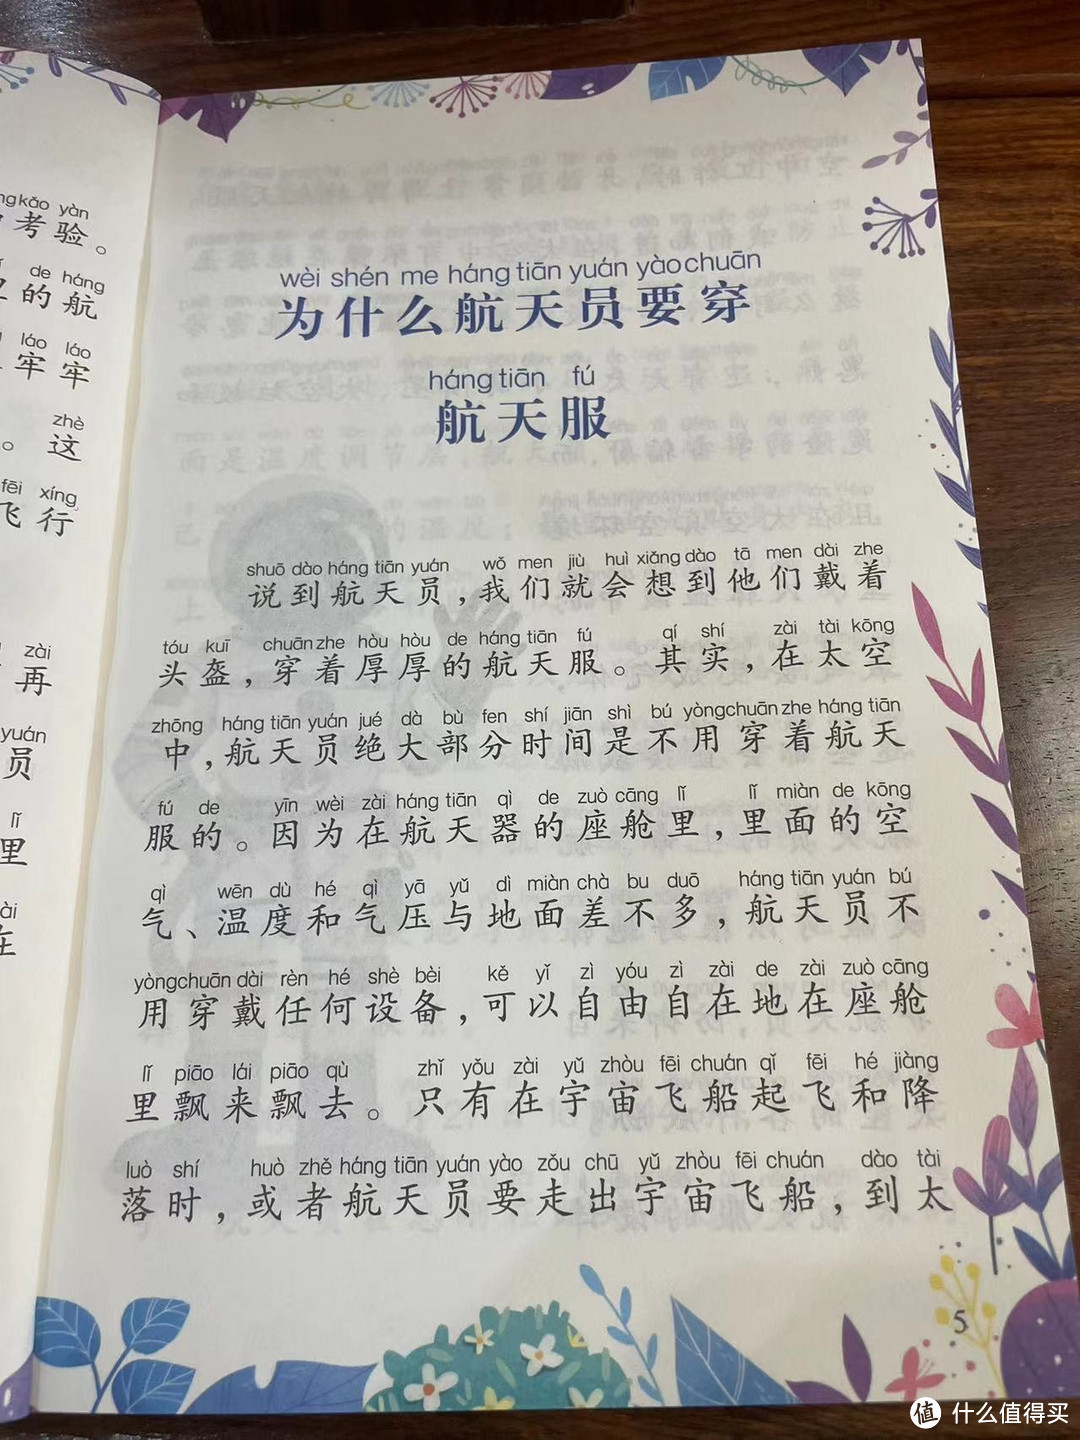 ngkǎo yàn
考验。
de háng
的航
láo láo
牢牢
zhè
。这
fēi xíng
飞行
zài
再
yuán
员
lǐ
里
wèi shén me háng tiān yuán yào chuān
为什么航天员要穿
háng tiān fú
航天服
shuō dào háng tiān yuán wǒ men jiù huì xiǎng dào tā men dài zhe
说到航天员，我们就会想到他们戴着
tóu kuī chuān zhe hòu hòu de háng tiān fú qí shí zài tài kōng
头盔，穿着厚厚的航天服。其实，在太空
zhōng háng tiān yuán jué dà bù fen shí jiān shì bú yòng chuān zhe háng tiān
中，航天员绝大部分时间是不用穿着航天
fú de yīn wèi zài háng tiān qì de zuò cāng lǐ lǐ miàn de kōng
服的。因为在航天器的座舱里，里面的空
qì wēn dù hé qì yā yǔ dì miàn chà bu duō háng tiān yuán bú
气、温度和气压与地面差不多，航天员不
yòng chuān dài rèn hé shè bèi kě yǐ zì yóu zì zài de zài zuò cāng
用穿戴任何设备，可以自由自在地在座舱
lǐ piāo lái piāo qù zhǐ yǒu zài yǔ zhòu fēi chuán qǐ fēi hé jiàng
里飘来飘去。只有在宇宙飞船起飞和降
luò shí huò zhě háng tiān yuán yào zǒu chū yǔ zhòu fēi chuán dào tài
落时，或者航天员要走出宇宙飞船，到太
5
值 什么值得买